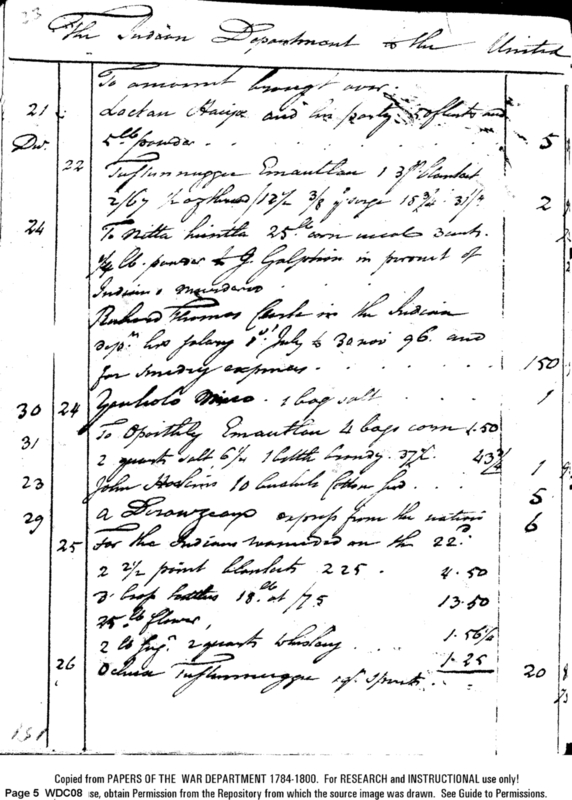 23
The Indian Department to the United
To amount brought over
21 Loctan Harjo and his party 5 flints and
Dec. 5 lb powder 5
22 Tustunnuggee Emautlau 1 3 pt blanket
2/67 1/2 oz thread /12 1/2 3/8 yd serge 15 3/4 2
24 To Nitta huntla 25 lb corn meal 3 cents
1/4 lb powder to J. Galphin in pursuit of
Indian murderers
Richard Thomas Clerk in the Indian
dept his salary 1st July to 30 nov 96. and
for sundry expenses 150
30 24 Yauholo Mico 1 bag salt 1
31 To Opoithly Emautlau 4 bags corn 1.50
2 quarts salt 6 1/2 1 bottle brandy 37 1/2 43 3/4 1
23 John Hoskins 10 bushels Cotton seed 5
29 a Derouzeaux express from the nation 6
25 For the Indians wounded on the 22d
2 2 1/2 point blankets 225 4.50
3 brass kettles 18 lb at /75 13.50
25 lb flower
2 lb sugr 2 quarts whiskey 1.56 1/4
1.25
26 Tustunnuggee 1 qt spirits 20
Copied from PAPERS OF THE WAR DEPARTMENT 1784-1800. For RESEARCH and INSTRUCTIONAL use only!
Page 5 WDC08 se, obtain Permission from the Repository from which the source image was drawn. See Guide to Permissions.